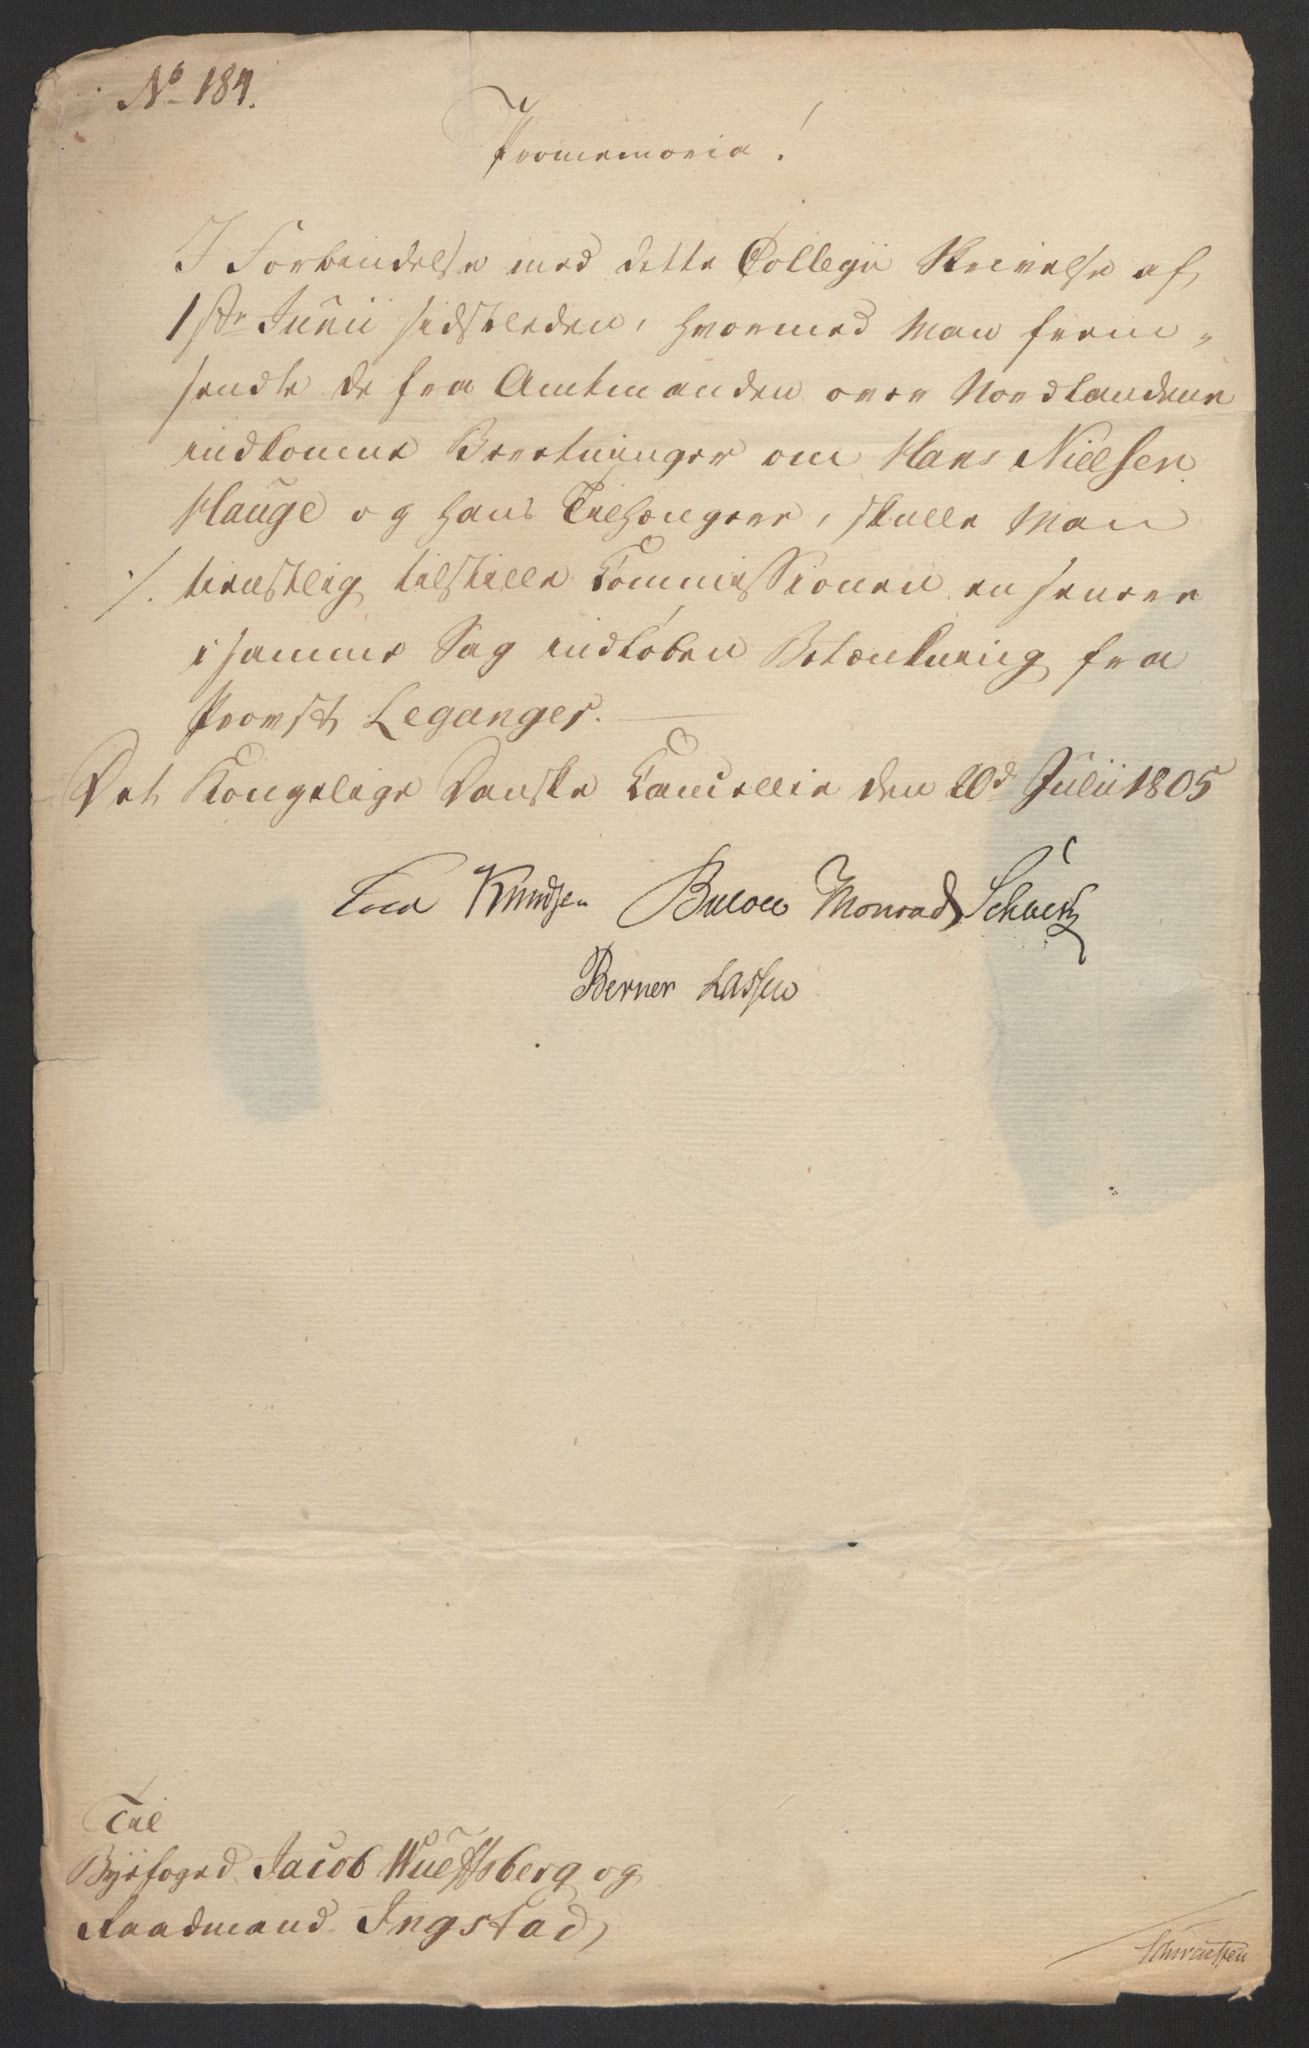 No 184.
Promemoria!
I Forbindelse med dette Collegii Skrivelse af
1ste Junii sidstleden, hvormed Man frem-
sendte de fra Amtmanden over Nordlandene
indkomne Beretninger om Hans Nielsen
Hauge og hans Tilhængere, skulle Man
tienstlig tilstille Commissionen en senere
i samme Sag indløben Betænkning fra
Provst Leganger.
Det Kongelige Danske Cancellie den 20d Julii 1805
Knudsen Bülow Monrad
Berner Lassen
Til
Byefoged Jacob Wulfsberg og
Raadmand Ingstad,